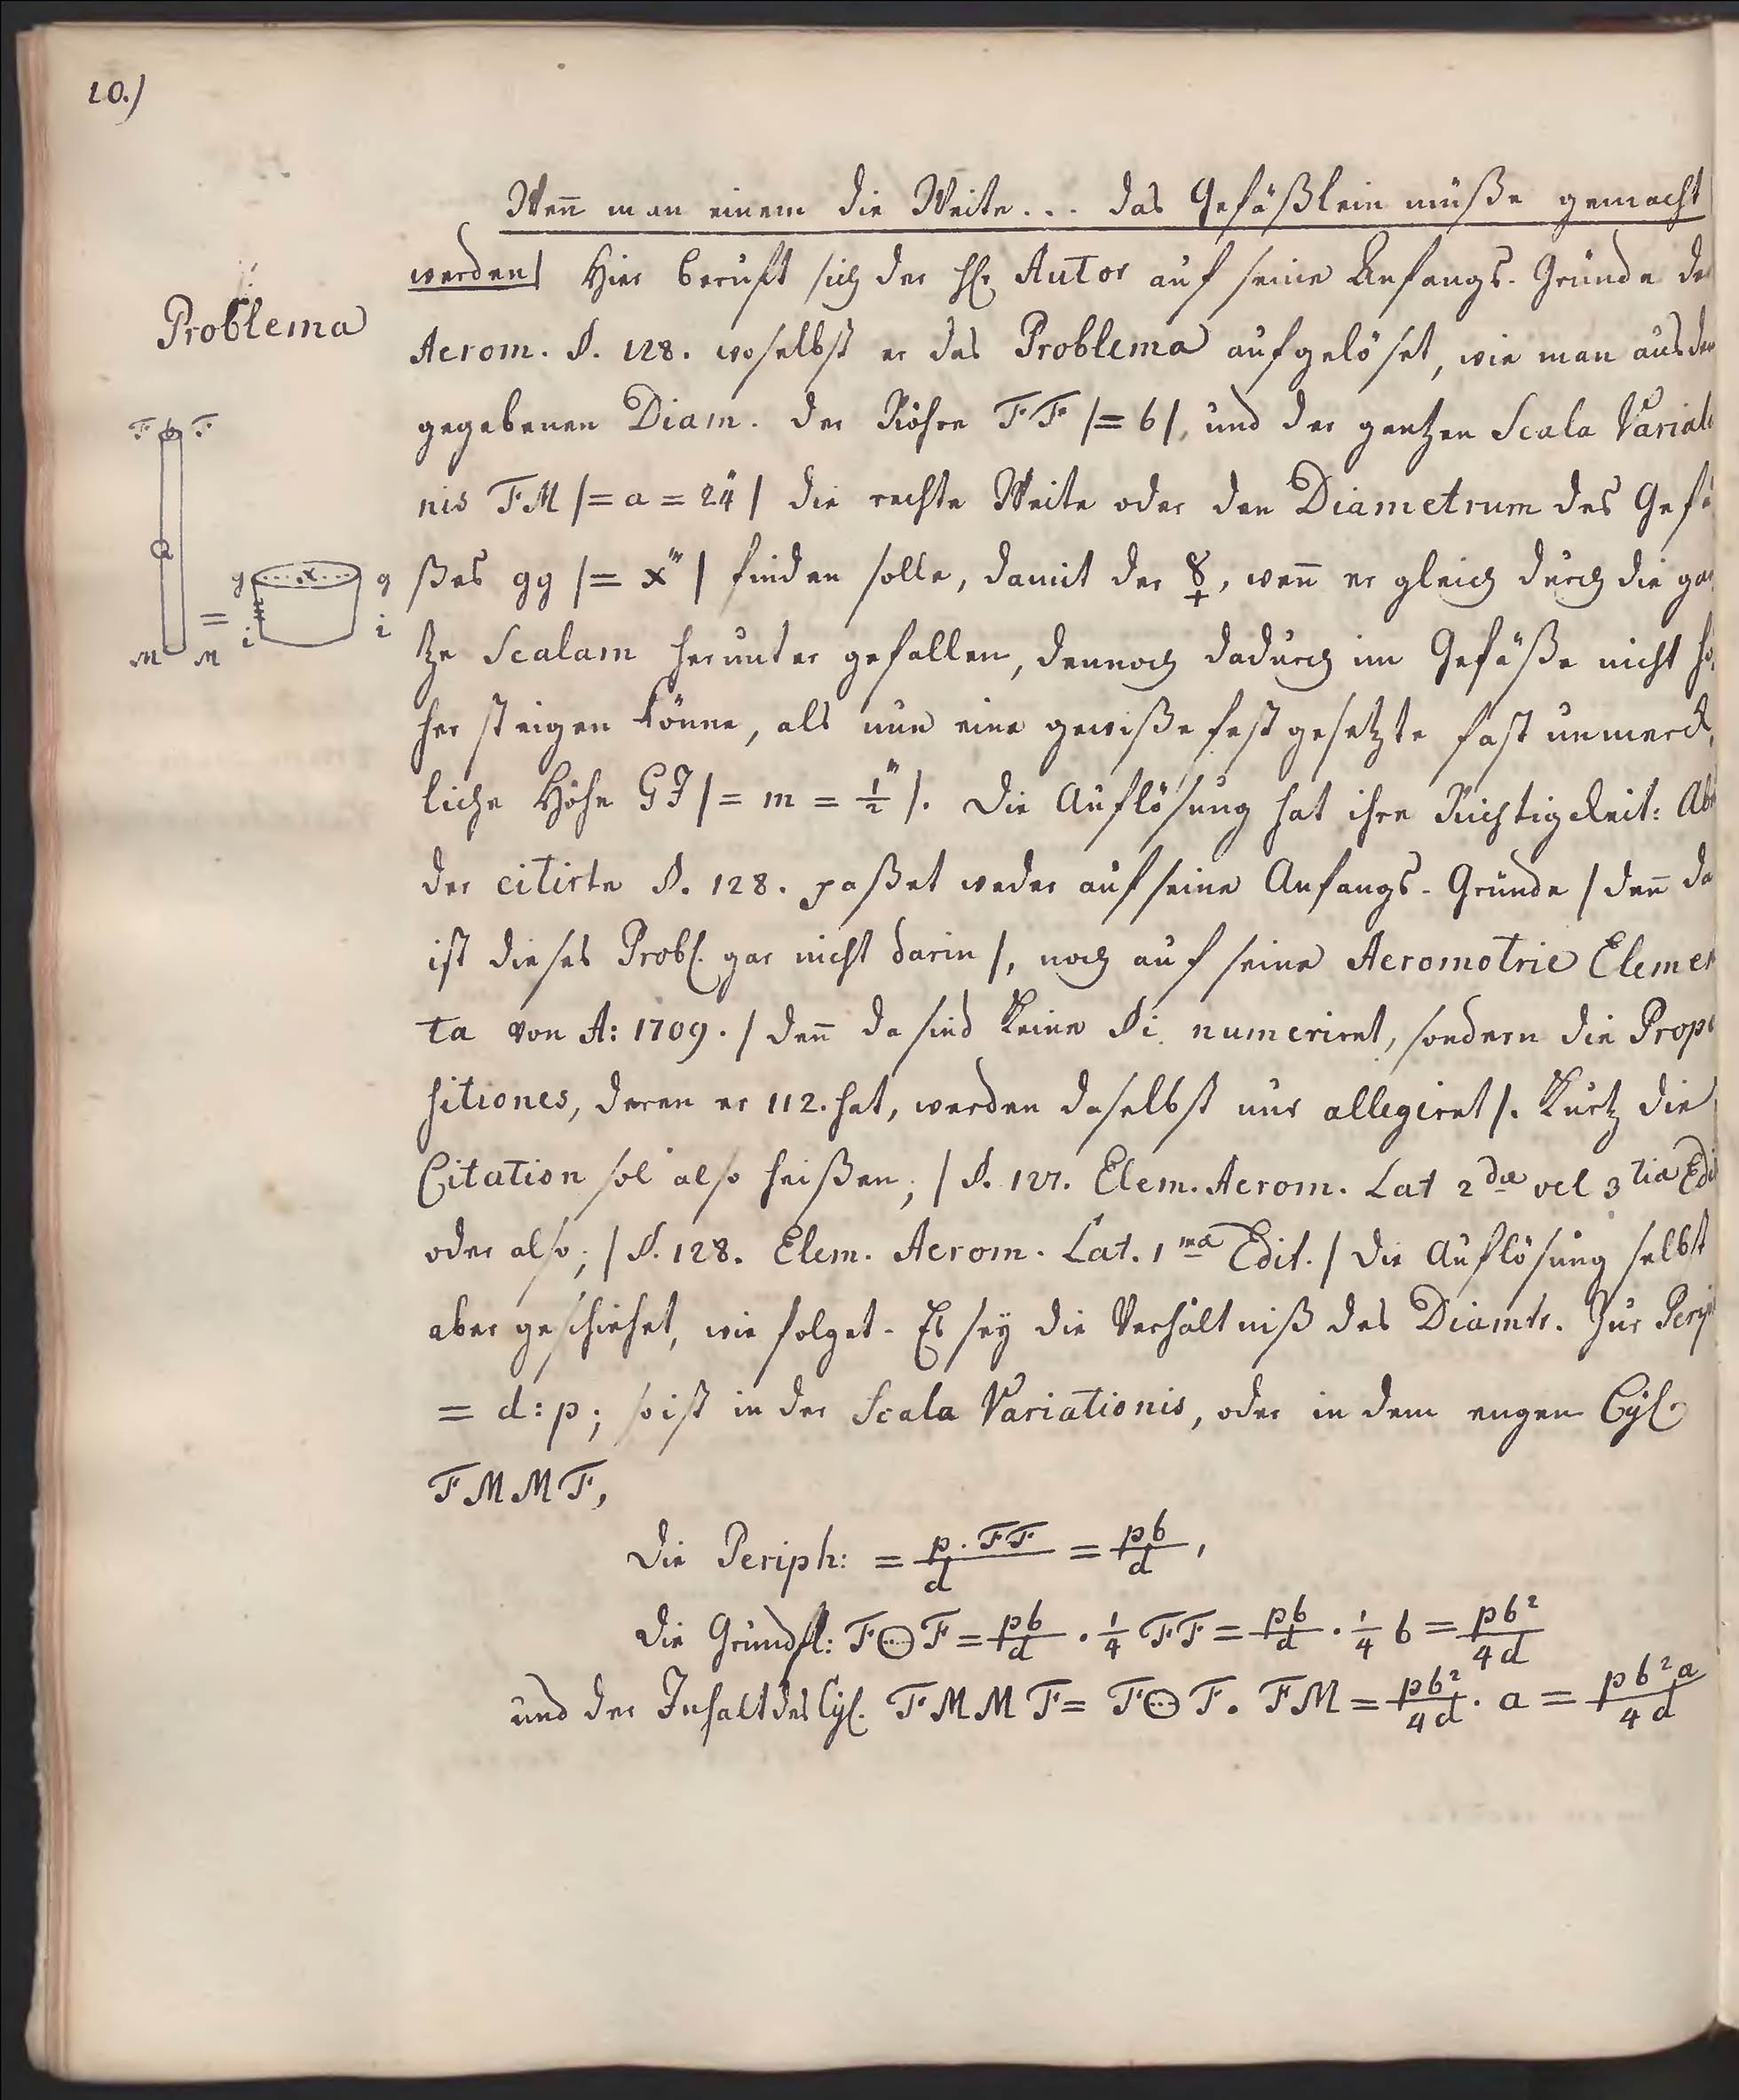 10.)
Wen̄ man einem die Weite... das Gefäßlein müße gemacht
werden| Hier beruft sich der H. Autor auf seine Anfangs-Gründe der
Problema
Aerom. §. 128. woselbst er das Problema aufgelöset, wie man aus dem
gegebenen Diam. der Röhre FF |= b|, und der gantzen Scala Variatio
nis FM |= a = 24''| die rechte Weite oder den Diametrum des Gefä
ßes gg |= x'''| finden solle, damit der ☿, wen̄ er gleich durch die gan
tze Scalam herunter gefallen, dennoch dadurch im Gefäße nicht hö
her steigen könne, als nun eine gewiße fest gesetzte fast unmerck,
liche Höhe GI |= m = 1/2'''|. Die Auflösung hat ihre Richtigkeit: Aber
der citirte §. 128. paßet weder auf seine Anfangs-Gründe | den̄ da
ist dieses Probl. gar nicht darin |, noch auf seine Aeromotrie Elemen
ta von A: 1709. | den̄ da sind keine §i numeriret, sondern die Propo
sitiones, deren er 112. hat, werden daselbst nur allegiret |. Kurtz die
Citation sol also heißen; | §. 127. Elem. Aerom. Lat 2dæ vel 3tiæ Edit
oder also; | §. 128. Elem. Aerom. Lat. 1mæ Edit. | Die Auflösung selbst
aber geschiehet, wie folget. Es sey die Verhältniß des Diamtr. zur Periph
= d : p; so ist in der Scala Variationis, oder in dem engen Cyl.
FMMF,
Die Periph: = p . FF / d = pb / d,
Die Grundfl: F☉F = pb / d . 1/4 FF = pb / d . 1/4 b = pb² / 4d
und der Inhalt des Cyl. FMMF = F☉F . FM = pb² / 4d . a = pb²a / 4d
F b F
a
M M
=
g x g
i i